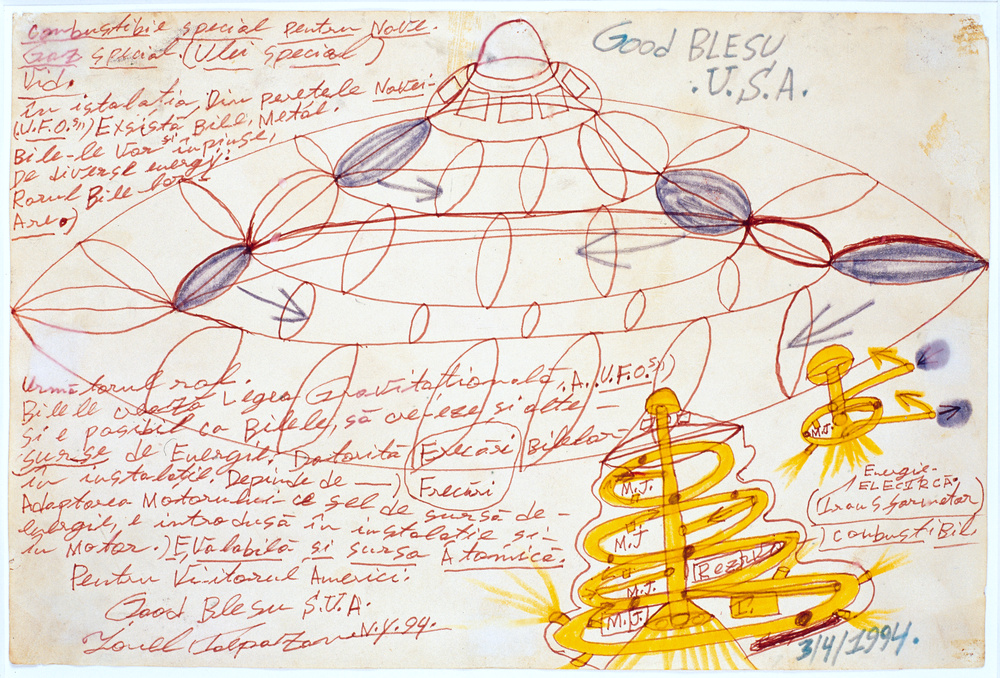 Combustibil special pentru Nove.
Gaz special. (Ulei special)
Vid.
În istalația, Din peretele Navei-
(U.F.O.s,,) Exsistă Bile, Metal.
Bile-le Vor și împinse,
De diverse energy.
Rorul Bile-lor
Are.)
Good BLESU
.U.S.A.
Următorul rol.
Bilele crează Legea Gravitatională, A. U.F.O.s,,)
Și e posibil ca Bilele, să creieze și alte-
surse de Energii, Datorită (Execări) Bilelor
în instalație. Depinde de —) Frecări
Adaptarea Motorului-ce fel de sursă de-
energii, e introdusă în instalație și-
în Motor.) EValabilă și sursa Atomică.
Pentru Viitorul Americi.
Good Blesu S.U.A.
Ionel Talpazan N.Y.94.
M.J.
M.J
M.J.
M.J.
M.J.
Energie-
ELECTRCĂ.
(Transformator)
) Combustibil
3/4/1994.